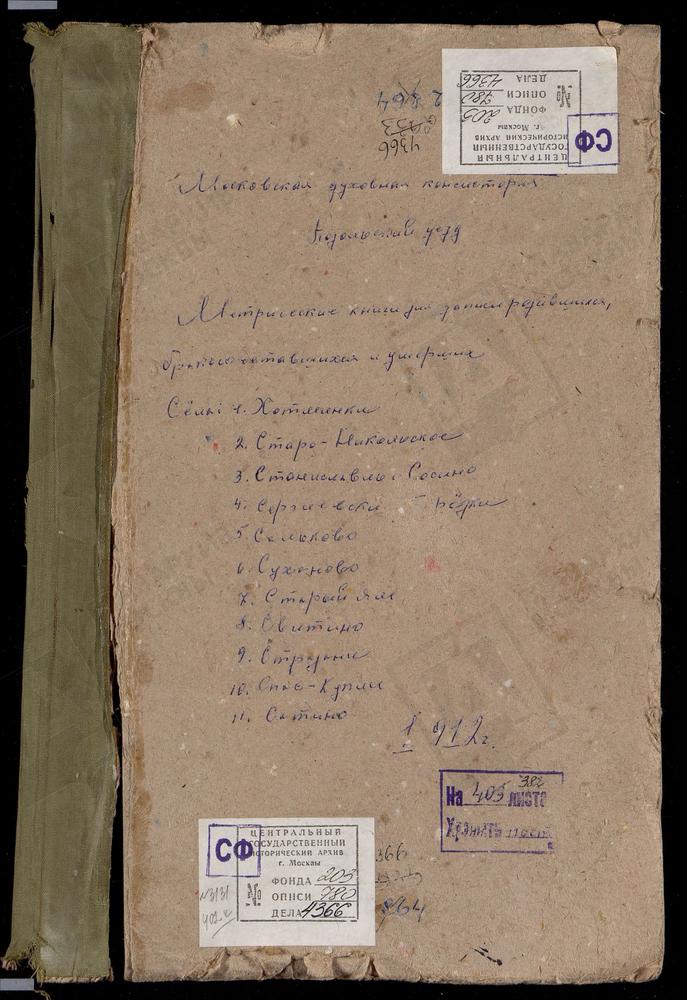 ЦЕНТРАЛЬНЫЙ
ГОСУДАРСТВЕННЫЙ
ИСТОРИЧЕСКИЙ АРХИВ
г. Москвы
ФОНДА 203
№ ОПИСИ 780
ДЕЛА 4366
СФ
4366
Московская духовная консистория
Подольский уезд
Метрические книги для записи родившихся,
бракосочетавшихся и умерших
Сёлы: 1. Хотминки
2. Старо-Никольское
3. Станиславль Сосино
4. Сергиевски
5. Салыково
6. Суханово
7. Старый Ям
8. Свитино
9. Стрелки
10. Спас-Купли
11. Сатино
1912 г.
На 405 листа
382
Хранить пост.
СФ
ЦЕНТРАЛЬНЫЙ
ГОСУДАРСТВЕННЫЙ
ИСТОРИЧЕСКИЙ АРХИВ
г. Москвы
ФОНДА 203
№ ОПИСИ 780
ДЕЛА 4366
№3131
366
864